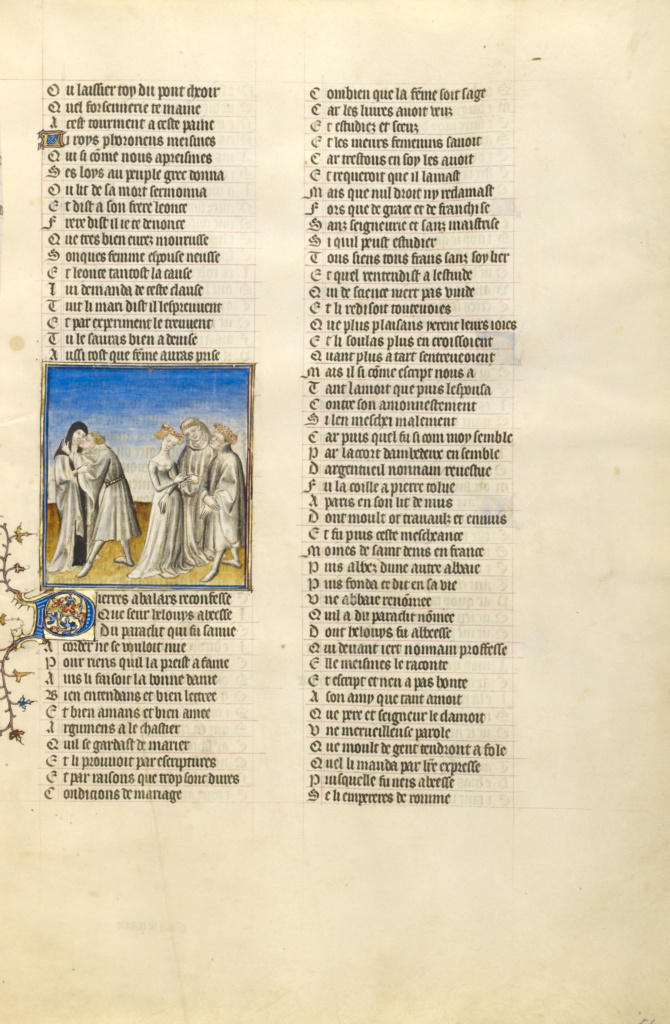 Ou laissier toy du pont cheoir
Quel forsennerie te maine
A cest tourment a ceste paine
Li roys phoroneus meismes
Qui si cõme nous apreismes
Ses loys au peuple grec donna
Ou lit de sa mort sermonna
Et dist a son frere leonce
Frere dist il ie te denonce
Que tres bien eurez mourusse
Sonques femme espouse neusse
Et leonce tantost la cause
Lui demanda de ceste clause
Tuit li mari dist il lespreuuent
Et par experiment le treuuent
Tu le sauras bien a deuise
Aussi tost que fẽme auras prise
Pierres abalars reconfesse
Que seur helouys abeesse
Du paraclit qui fu samie
Acorder ne se vouloit mie
Pour riens quil la preist a fame
Ains li faisoit la bonne dame
Bien entendans et bien lettree
Et bien amans et bien amee
Argumens a le chastier
Quil se gardast de marier
Et li prouuoit par escriptures
Et par raisons que trop sont dures
Condicions de mariage
Combien que la fẽme soit sage
Car les liures auoit veuz
Et estudiez et sceuz
Et les meurs femenins sauoit
Car trestous en soy les auoit
Et requeroit que il lamast
Mais que nul droit ny reclamast
Fors que de grace et de franchise
Sanz seigneurie et sanz maistrise
Si quil peust estudier
Tous siens tous frans sanz soy lier
Et quel rentendist a lestude
Qui de science niert pas vuide
Et li redisoit toutesuoies
Que plus plaisans yerent leurs ioies
Et li soulas plus en croissoient
Quant plus a tart sentreueoient
Mais il si cõme escript nous a
Tant lamoit que puis lespousa
Contre son amonnestement
Si len meschei malement
Car puis quel fu si com moy semble
Par lacort dambedeux ensemble
Dargentueil nonnain reuestue
Fu la coille a pierre tolue
A paris en son lit de nuis
Dont moult ot trauaulz et ennuis
Et fu puis ceste mescheance
Moines de saint denis en france
Puis abbez dune autre abbaie
Puis fonda ce dit en sa vie
Vne abbaie renõmee
Quil a du paraclit nõmee
Dont helouys fu abeesse
Qui deuant iert nonnain professe
Elle meismes le raconte
Et escript et nen a pas honte
A son amy que tant amoit
Que pere et seigneur le clamoit
Vne merueilleuse parole
Que moult de gent tendront a fole
Quel li manda par lr̃e expresse
Puis quelle fu neis abeesse
Se li empereres de romme